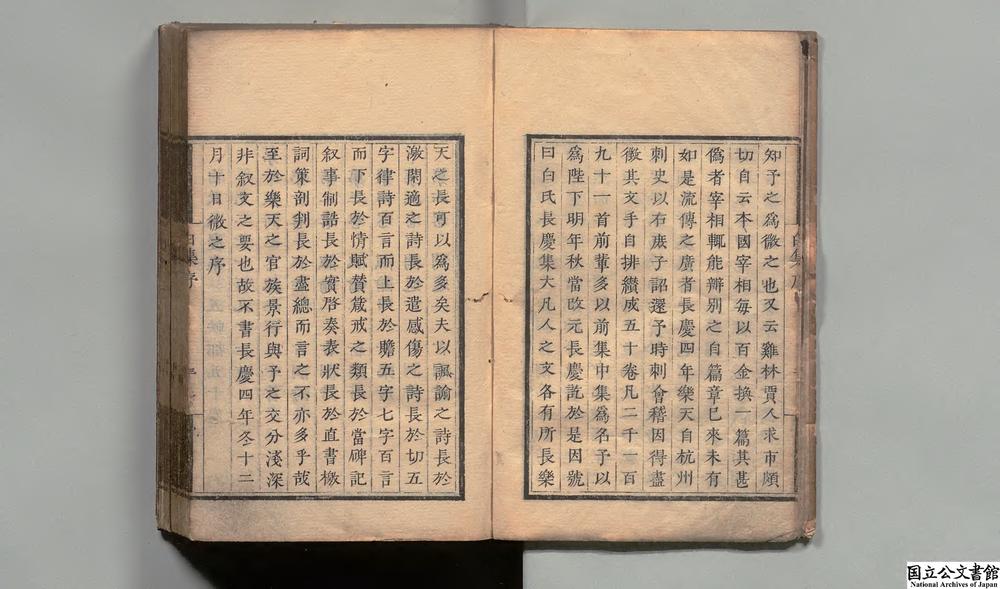 知予之爲微之也又云雞林賈人求市頗
切自云本國宰相每以百金換一篇其甚
僞者宰相輒能辯別之自篇章已來未有
如是流傳之廣者長慶四年樂天自杭州
刺史以右庶子詔還予時刺會稽因得盡
徵其文手自排纘成五十卷凡二千一百
九十一首前軰多以前集中集爲名予以
爲陛下明年秋當改元長慶訖於是因號
曰白氏長慶集大凡人之文各有所長樂
天之長可以爲多矣夫以諷諭之詩長於
激閑適之詩長於遣感傷之詩長於切五
字律詩百言而上長於贍五字七字百言
而下長於情賦賛箴戒之類長於當碑記
叙事制誥長於實啓奏表狀長於直書檄
詞策剖判長於盡總而言之不亦多乎哉
至於樂天之官族景行與予之交分淺深
非叙文之要也故不書長慶四年冬十二
月十日微之序
白集序
国立公文書館
National Archives of Japan